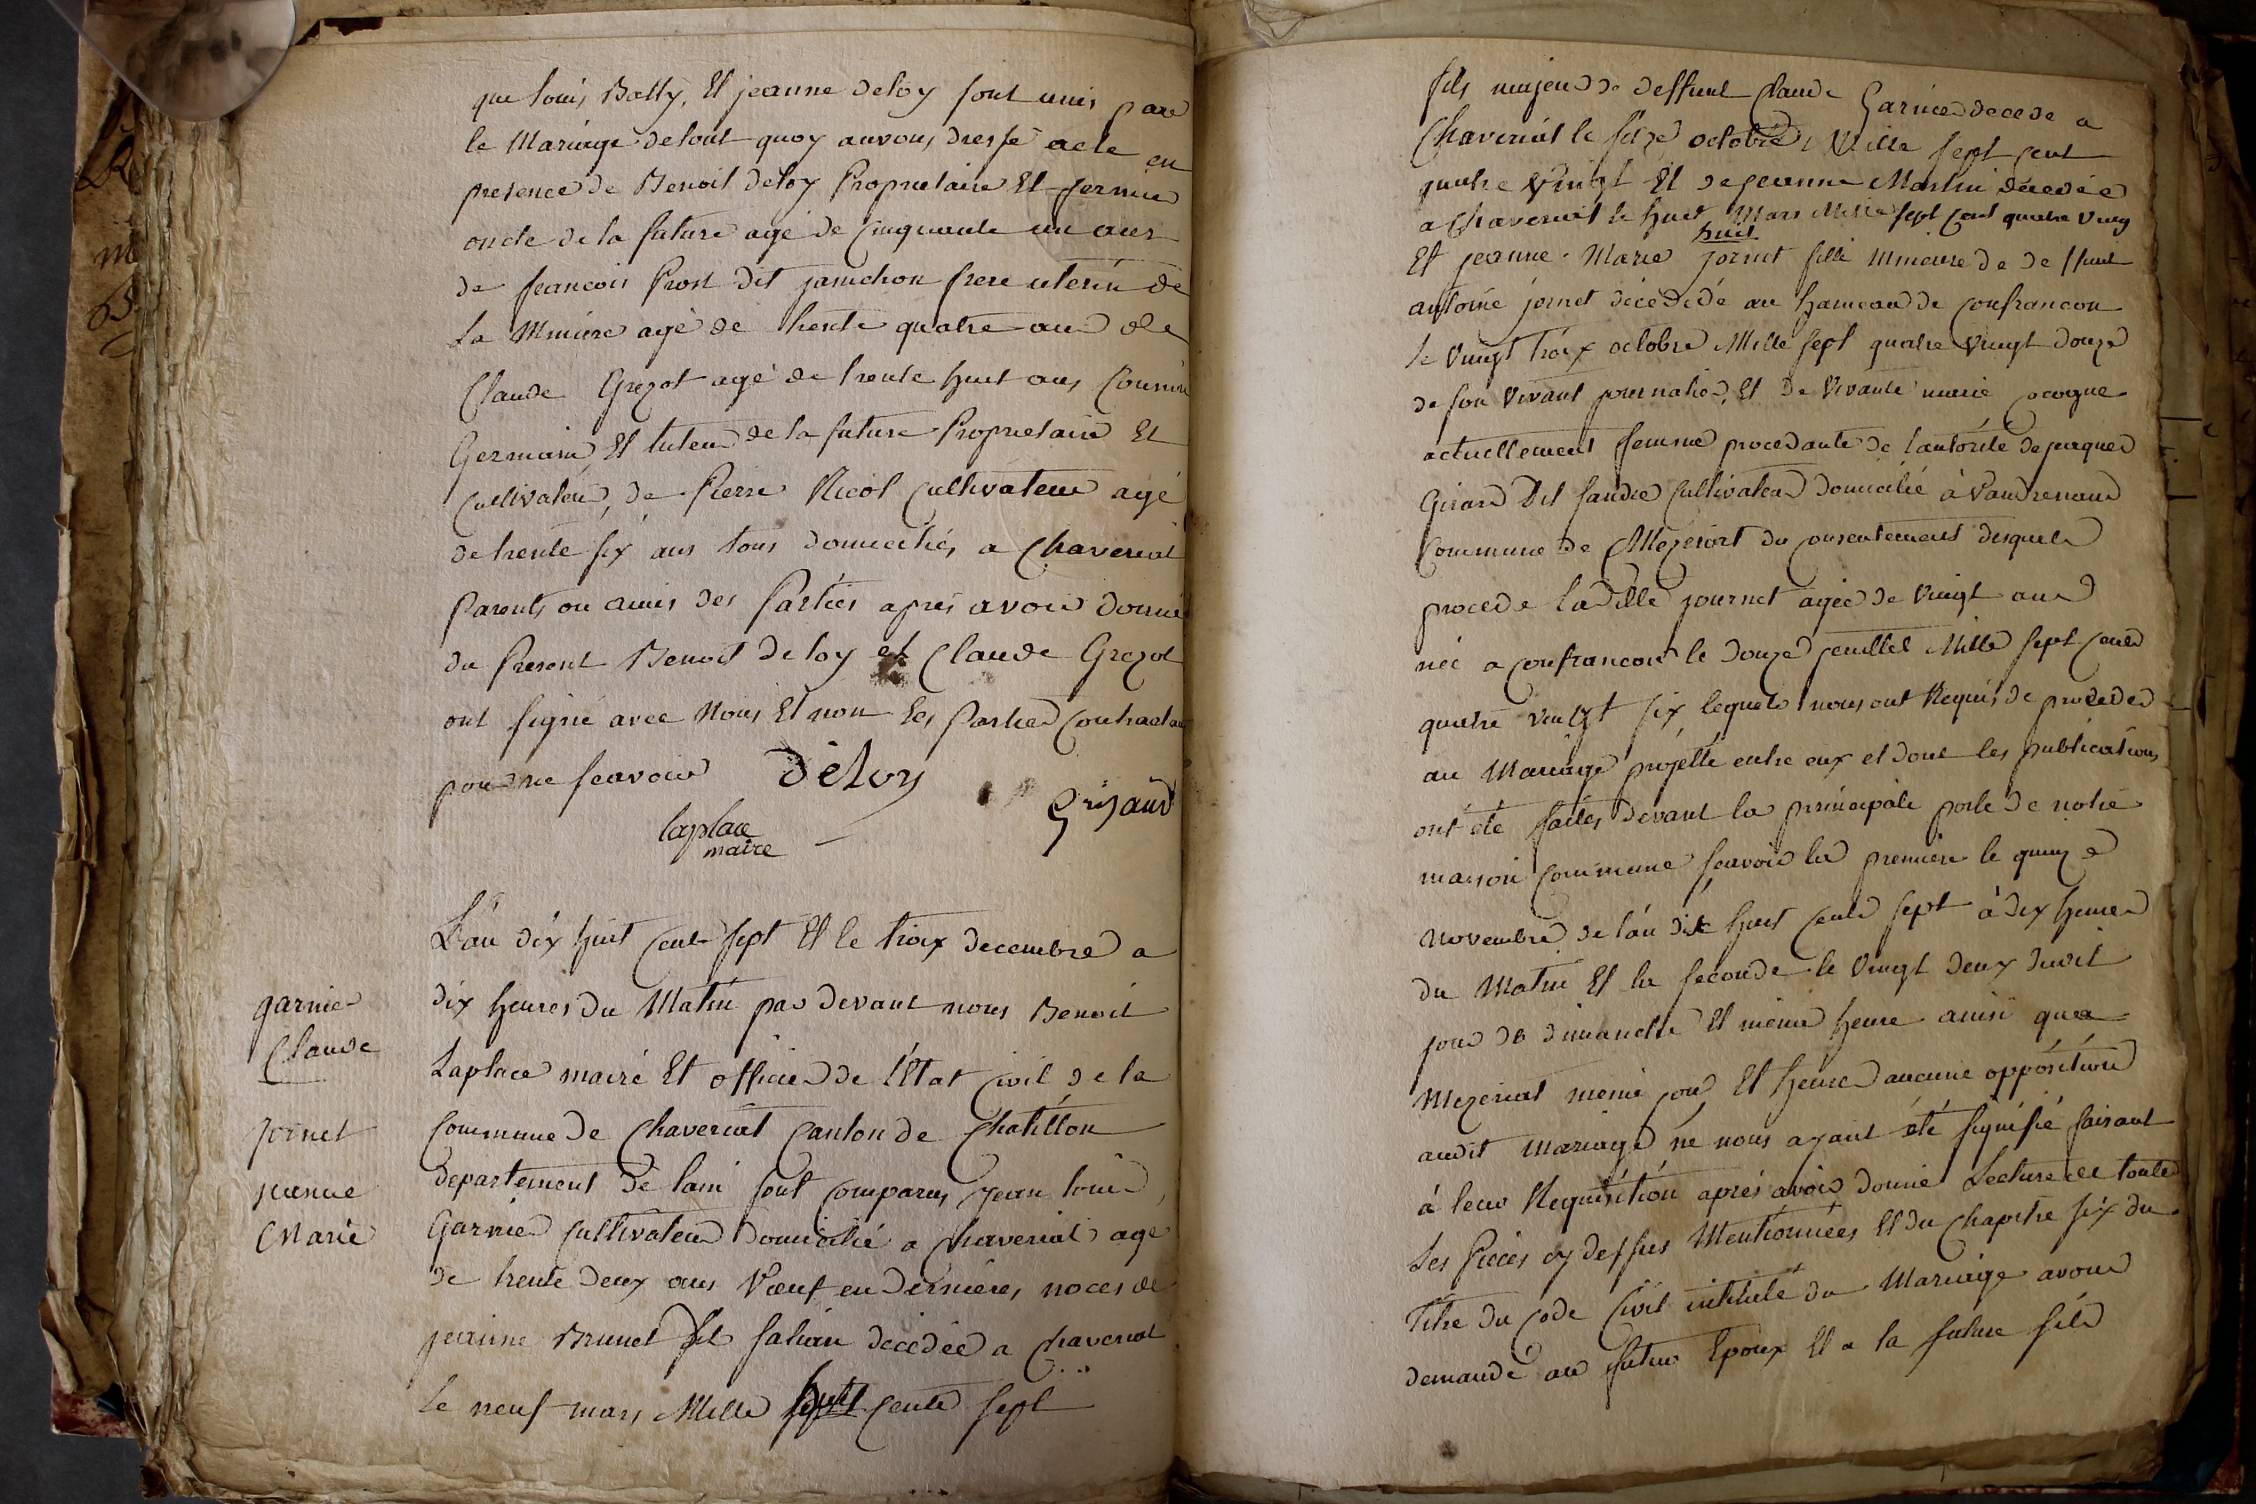 que louis Batty, Et jeanne deloy sont unis par
le Mariage de tout quoy avons dressé acte en
presence de Benoit deloy Proprietaire Et fermier
oncle de la future agé de Cinquante un ans
de francois Prost dit janichon frere uterin de
la Mineure agé de trente quatre ans de
Claude Grezot agé de trente huit ans Cousin
Germain Et tuteur de la future Proprietaire Et
Cultivateur, de Pierre Nicol Cultivateur agé
de trente six ans tous domiciliés a Chaveriat
Parents ou amis des Parties après avoir donné
du Present Benoit deloy et Claude Grezot
ont signé avec Nous Et non les Parties Contractan
pour ne scavoir Déloy
laplace Grizaud
maire
L'an dix huit Cent sept Et le troix decembre a
dix heures du Matin par devant nous Benoit
Laplace maire Et officier de l'Etat Civil de la
Commune de Chaveriat Canton de Chatillon
departement de lain sont Comparus jean louis
Garnier Cultivateur domicilié a Chaveriat agé
de trente deux ans Vœuf en dernieres noces de
jeanne Brunet decedée a Chaveriat
le neuf mars Mille huit Cents sept
garnier
Claude
jornet
jeanne
Marie
fils majeur de deffunt Claude Garnier decede a
Chaveriat le seize octobre Mille sept Cent
quatre Vingt Et de jeanne Martin décedée
a Chaveriat le huit Mars Mille sept Cent quatre Vingt
huit
Et jeanne Marie jornet fille mineure de deffunt
antoine jornet décédé au hameau de Confrancon
le Vingt troix octobre Mille sept quatre Vingt douze
de son Vivant journalier, Et de Vivante marie Cocogne
actuellement femme procedante de l'autorite de jaques
Girard dit Cultivateur domicilié à Vaudrenand
Commune de Mezeriat du consentement desquels
procede ladille journet agée de Vingt ans
née a Confrancon le douze jeuillet Mille sept Cents
quatre Vingt six, lequels nous ont Requis de proceder
au Mariage projetté entre eux et dont les publications
ont été faites devant la principale porte de notre
maison Commune scavoir la premiere le quinze
novembre de l'an dix huit Cents sept à dix heures
du Matin Et la seconde le Vingt deux dudit
jour de dimanche Et même heure ainsi qu'a
Mezeriat même jour Et heure aucune opposition
audit Mariage ne nous ayant été signifié faisant
à leur Requisition aprés avoir donné Lecture de toutes
Les Pieces cy dessus Mentionnées Et du Chapitre six du
Titre du Code Civil intitulé du Mariage avons
demandé au futur Epoux Et a la future sils